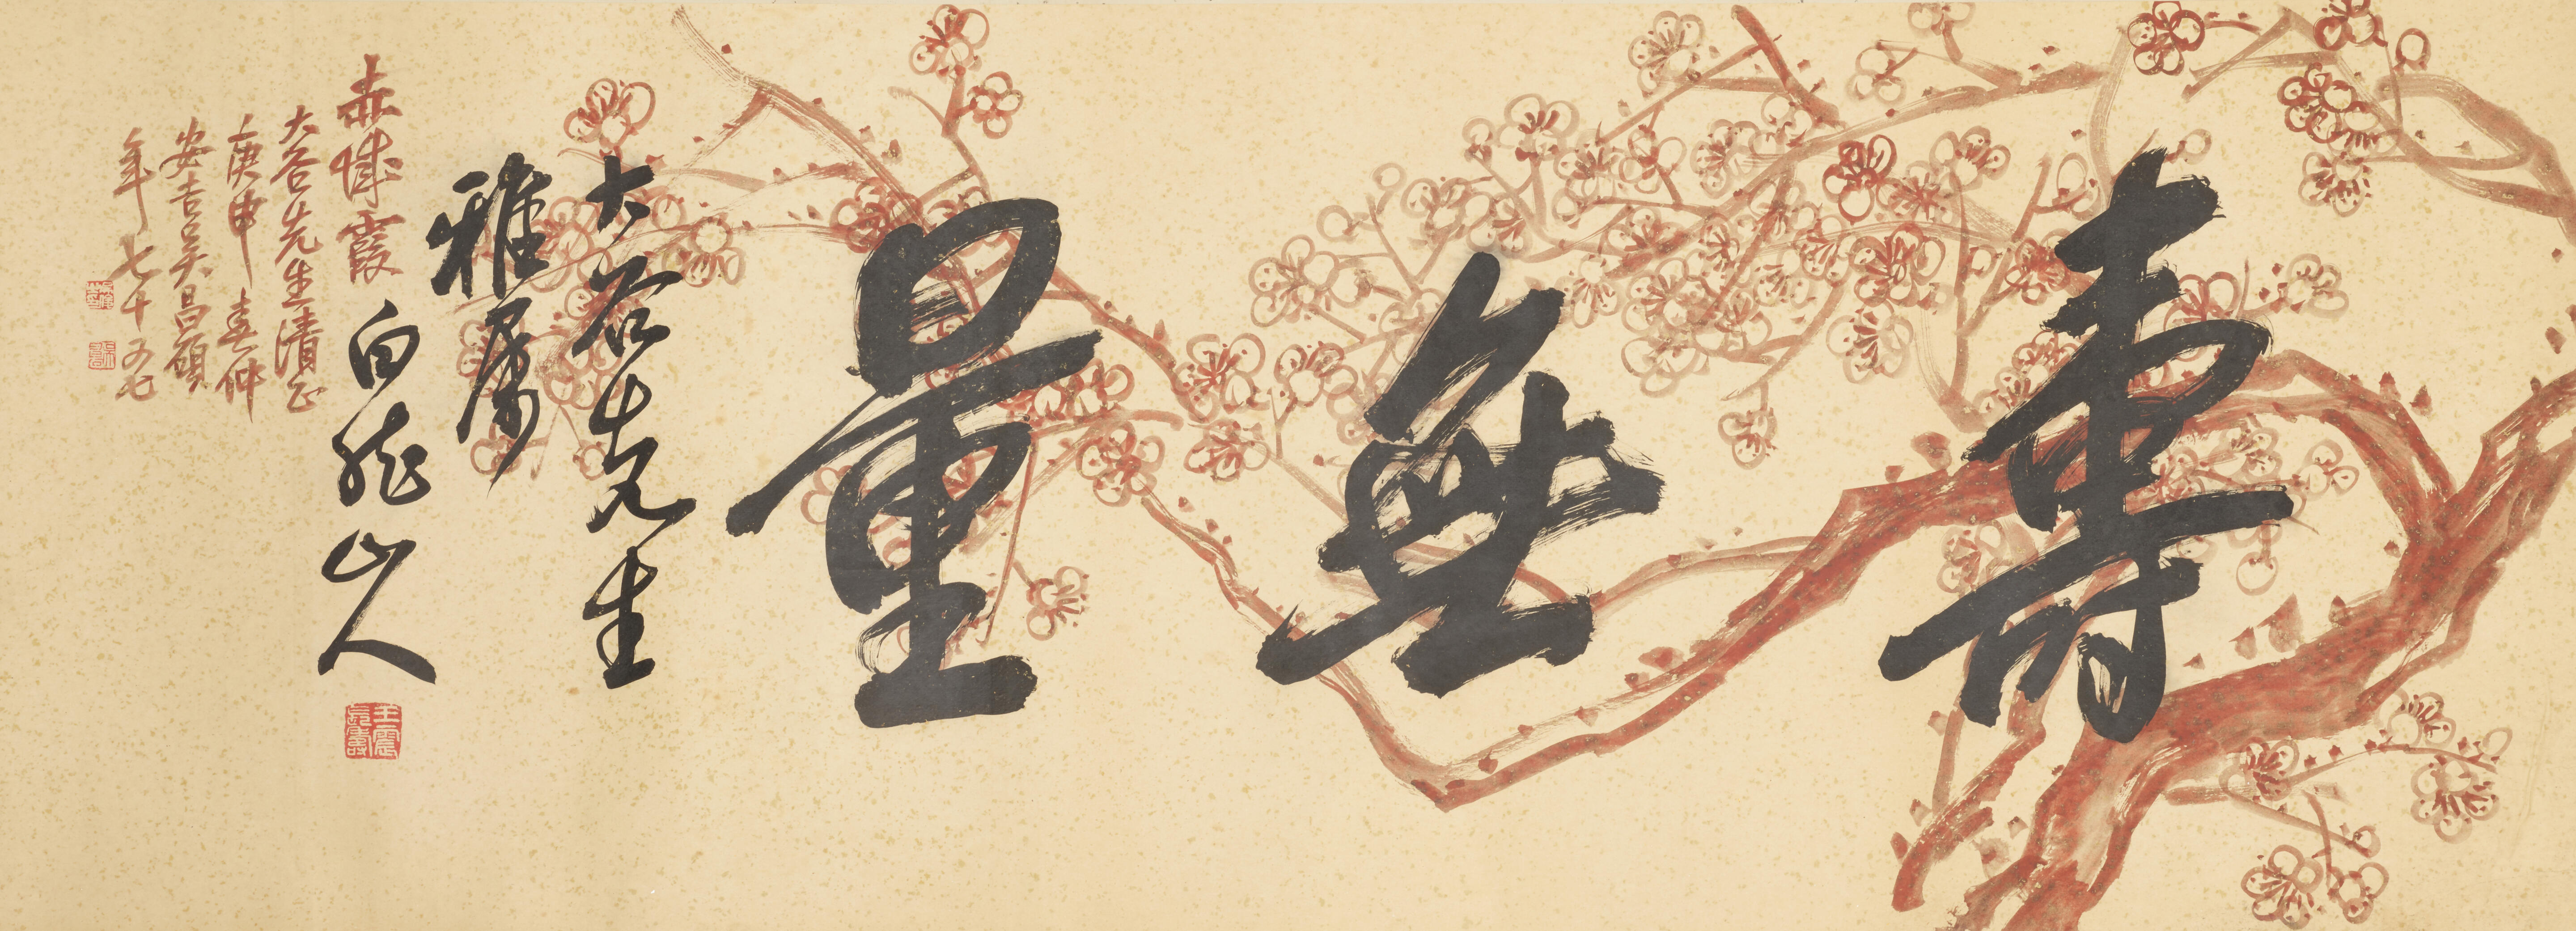 壽無量
大谷先生
雅屬
白龍山人
王震長壽
赤城霞
大谷先生清正
庚申春仲
安吉吳昌碩
年七十又七